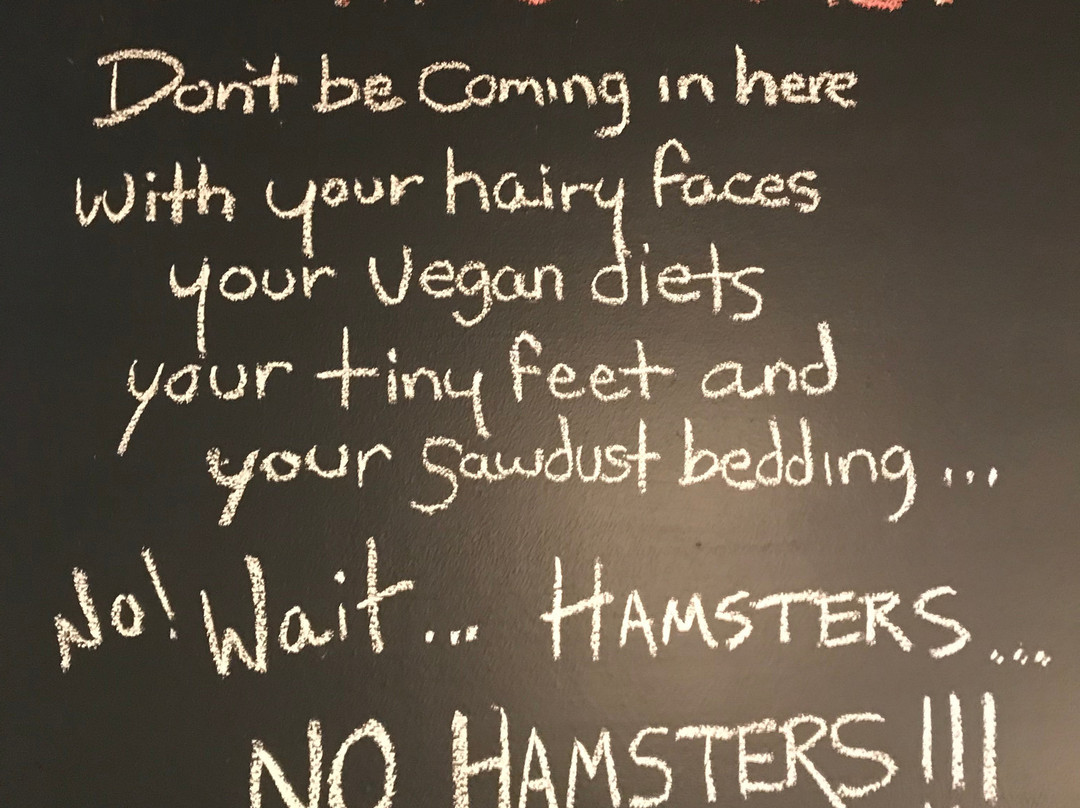 Don't be Coming in here
with your hairy faces
your Vegan diets
your tiny feet and
your Sawdust bedding...
No! Wait... HAMSTERS...
NO HAMSTERS!!!